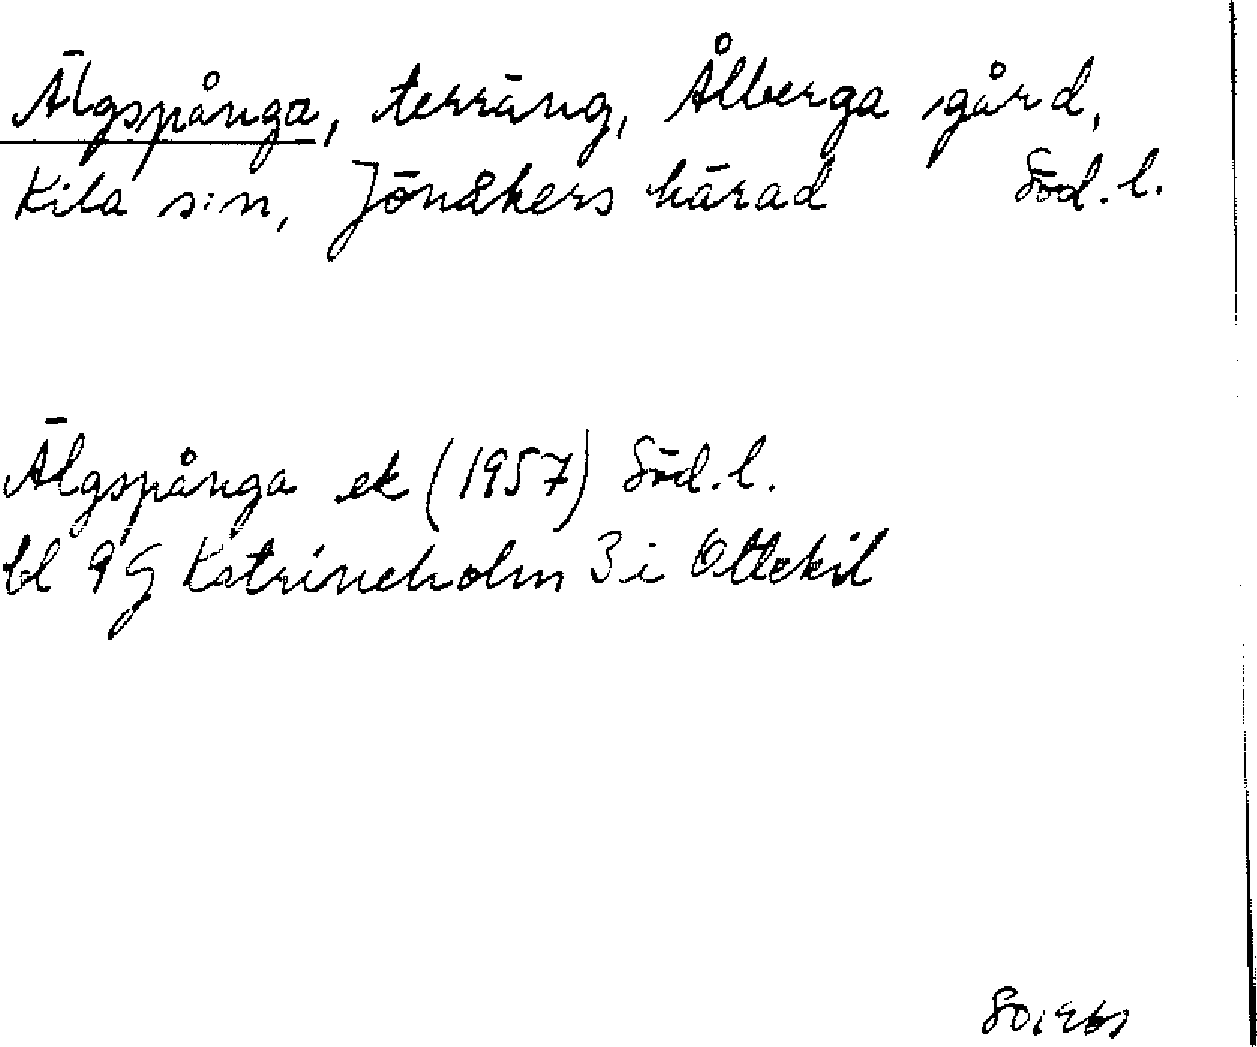 Älgspånga, terräng, Ålberga gård,
Kila s:n, Jönåkers härad Söd. l.
Älgspånga ek (1957) Söd. l.
bl 9G Katrineholm 3i Ottekil